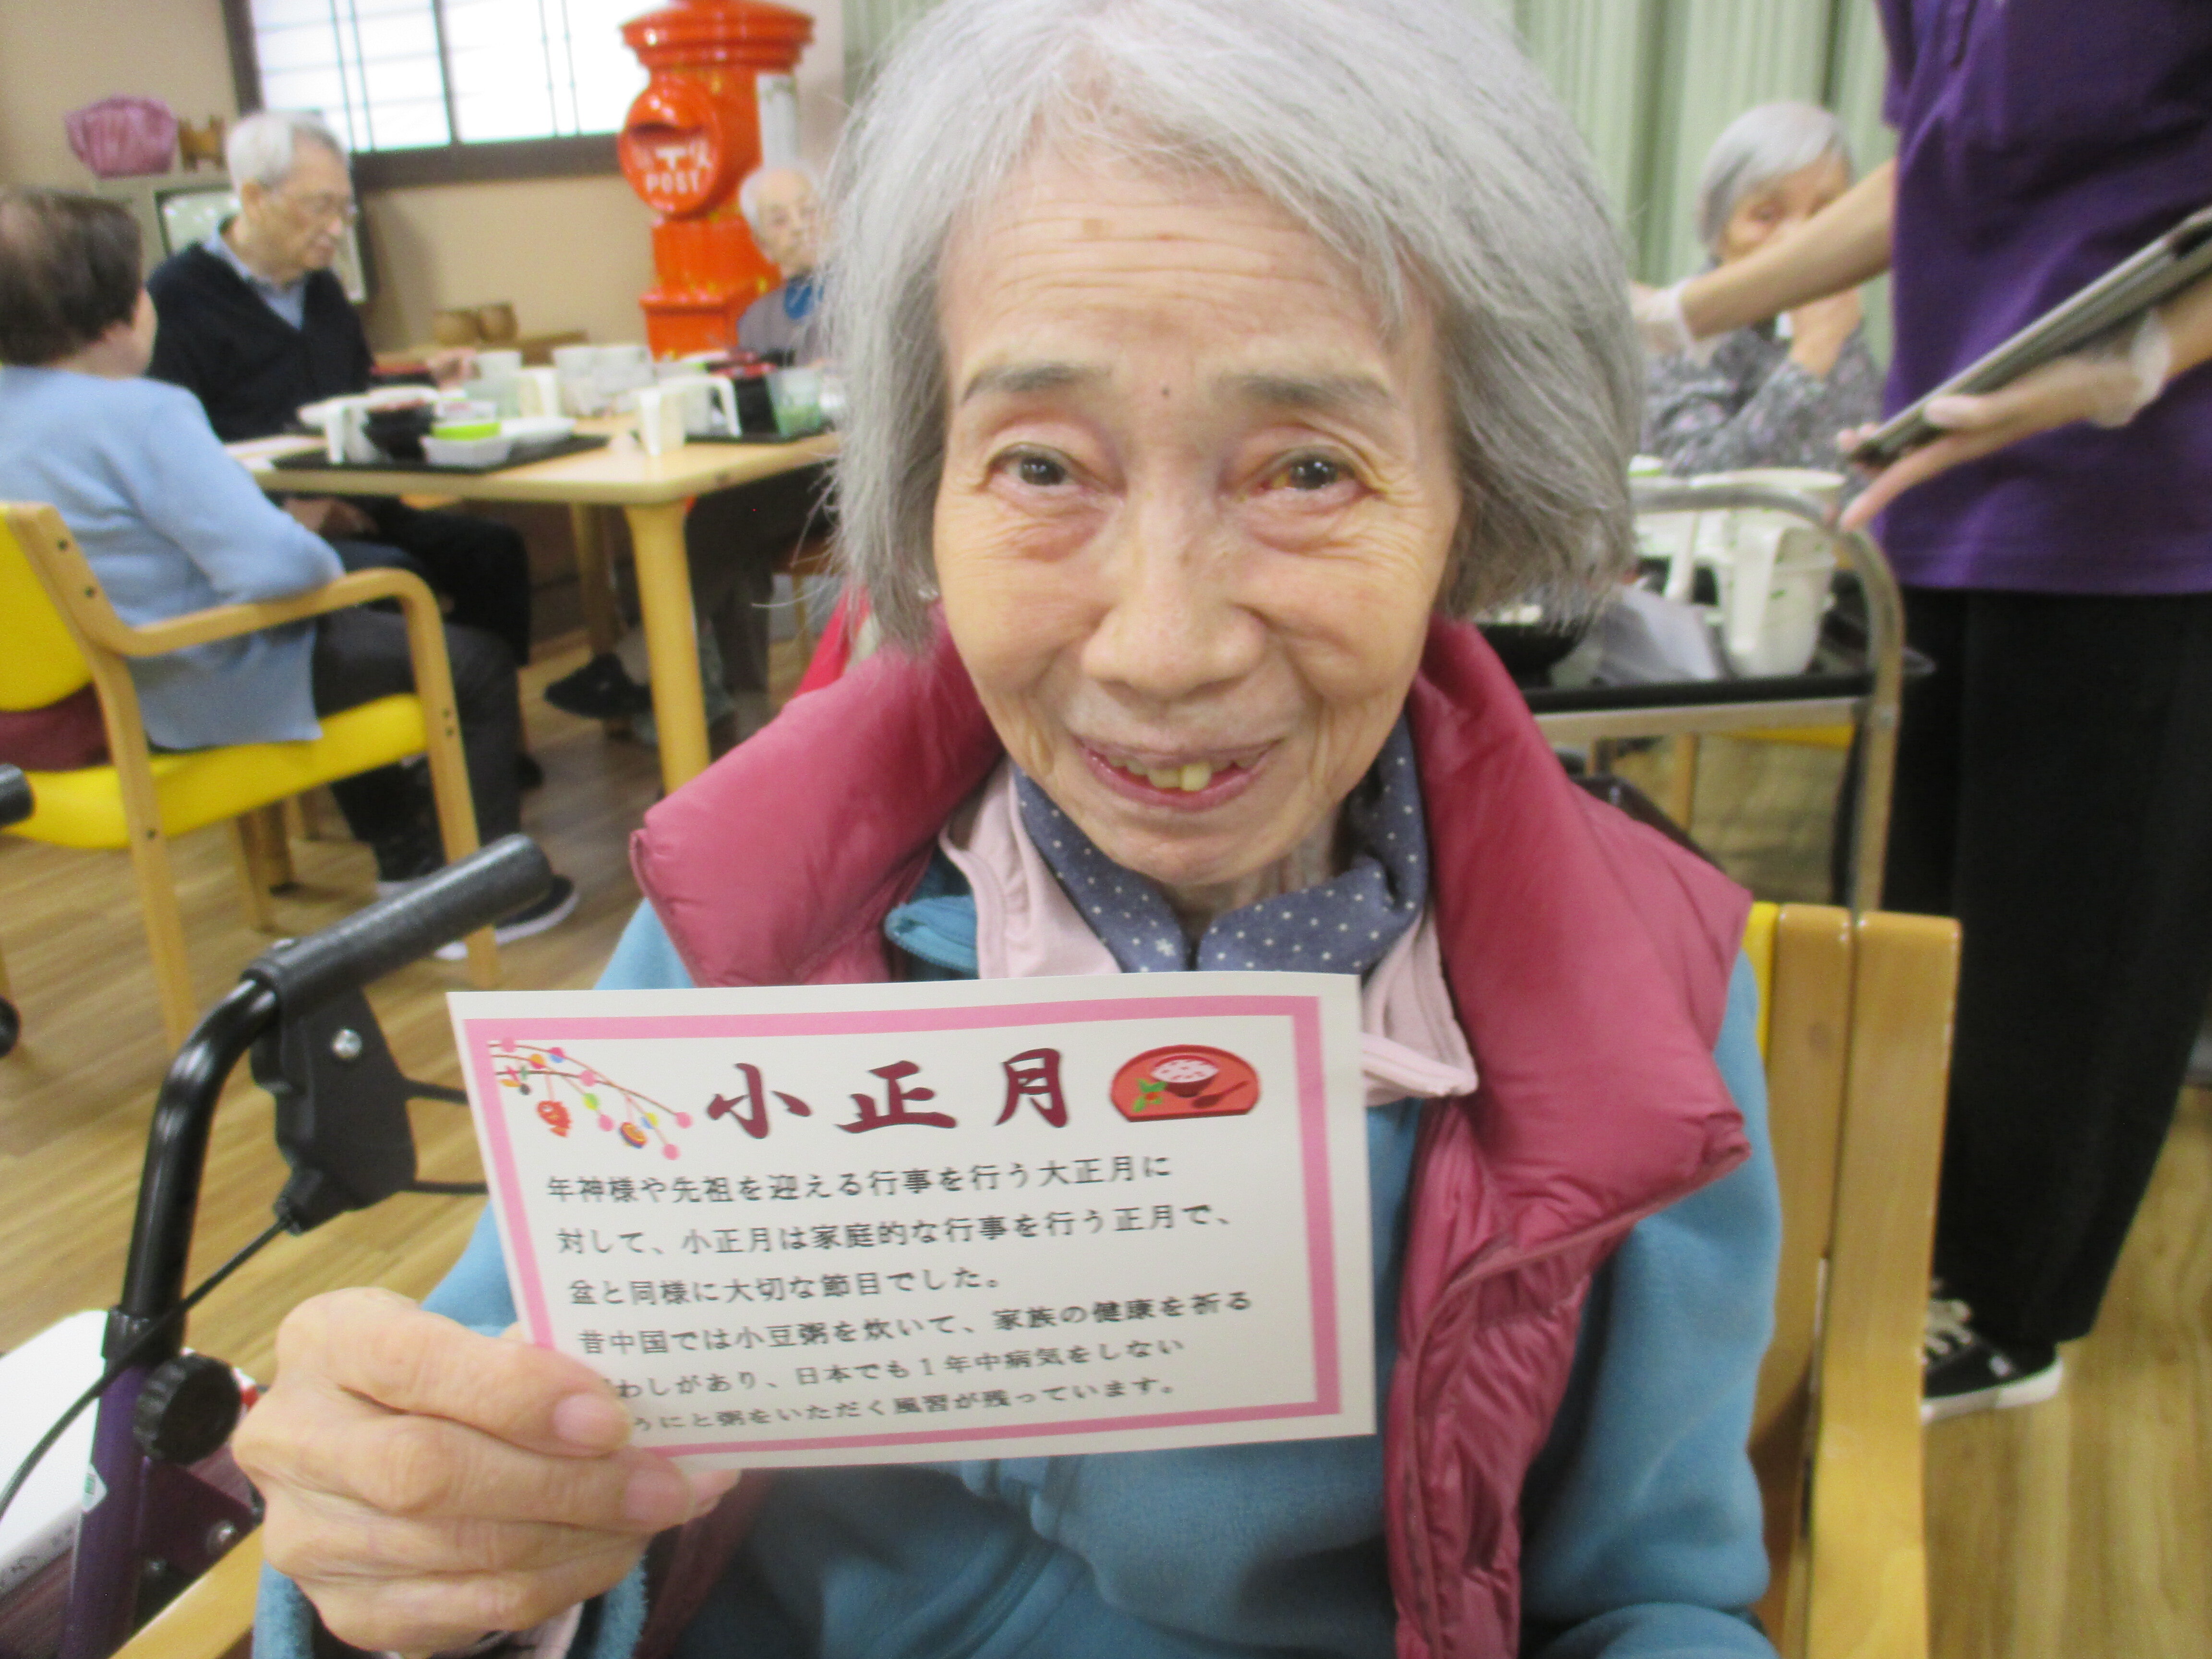 POST
小正月
年神様や先祖を迎える行事を行う大正月に
対して、小正月は家庭的な行事を行う正月で、
盆と同様に大切な節目でした。
昔中国では小豆粥を炊いて、家族の健康を祈る
わしがあり、日本でも1年中病気をしない
うにと粥をいただく風習が残っています。